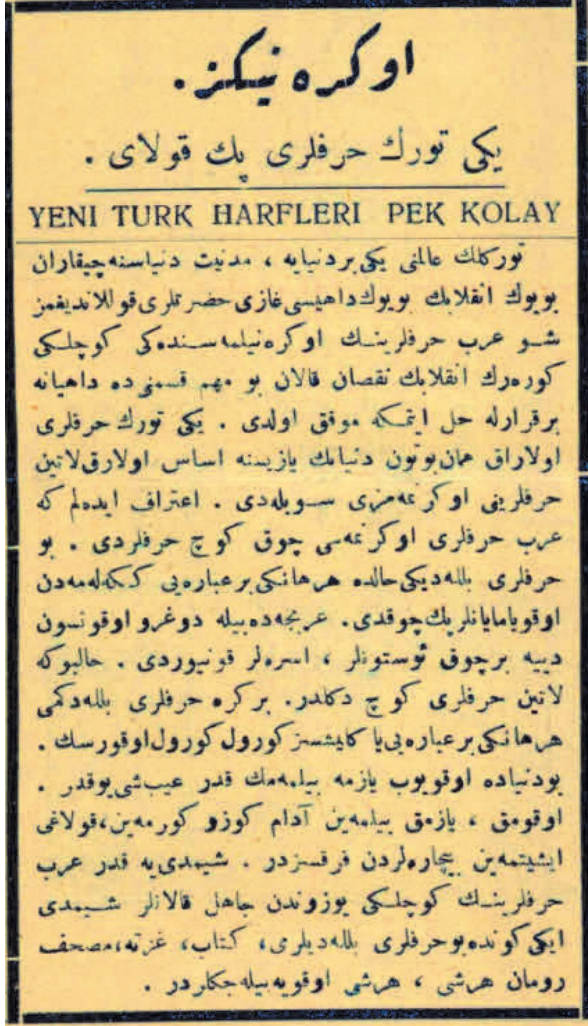 اوكره نيكز.
يكى تورك حرفلرى پك قولاى .
YENI TURK HARFLERI PEK KOLAY
توركلك عالمنى يكى بر دنيايه ، مدنيت دنياسنه چيقاران
بويوك انقلابك بويوك داهيسى غازى حضرتلرى قوللانديغمز
شو عرب حرفلرينك اوكره نيلمه سنده كى كوچلكى
كوره رك انقلابك نقصان قالان بو مهم قسمنى ده داهيانه
برقرارله حل ايتمكه موفق اولدى . يكى تورك حرفلرى
اولاراق همان بوتون دنيانك يازيسنه اساس اولارق لاتين
حرفلرينى اوكرنمه مزى سويله دى . اعتراف ايده لم كه
عرب حرفلرى اوكرنمه سى چوق كوچ حرفلردى . بو
حرفلرى بلله ديكى حالده هر هانكى بر عباره يى ككه له مه دن
اوقويامايانلر پك چوقدى. عربجه ده بيله دوغرو اوقونسون
دييه برچوق ئوستونلر ، اسره لر قونيوردى . حالبوكه
لاتين حرفلرى كوچ دكلدر. بر كره حرفلرى بلله دكمى
هر هانكى بر عباره يى يا كليشسز كورول كورول اوقورسك .
بودنياده اوقويوب يازمه بيلمه مك قدر عيب شى يوقدر .
اوقومق ، يازمق بيلمه ين آدام كوزو كورمه ين، قولاغى
ايشيتمه ين بيچاره لردن فرقسزدر . شيمدى يه قدر عرب
حرفلرينك كوچلكى يوزوندن جاهل قالانلر شيمدى
ايكى كونده بو حرفلرى بلله ديلرى، كتاب، غزته، مصحف
رومان هرشى ، هرشى اوقويه بيله جكلردر .